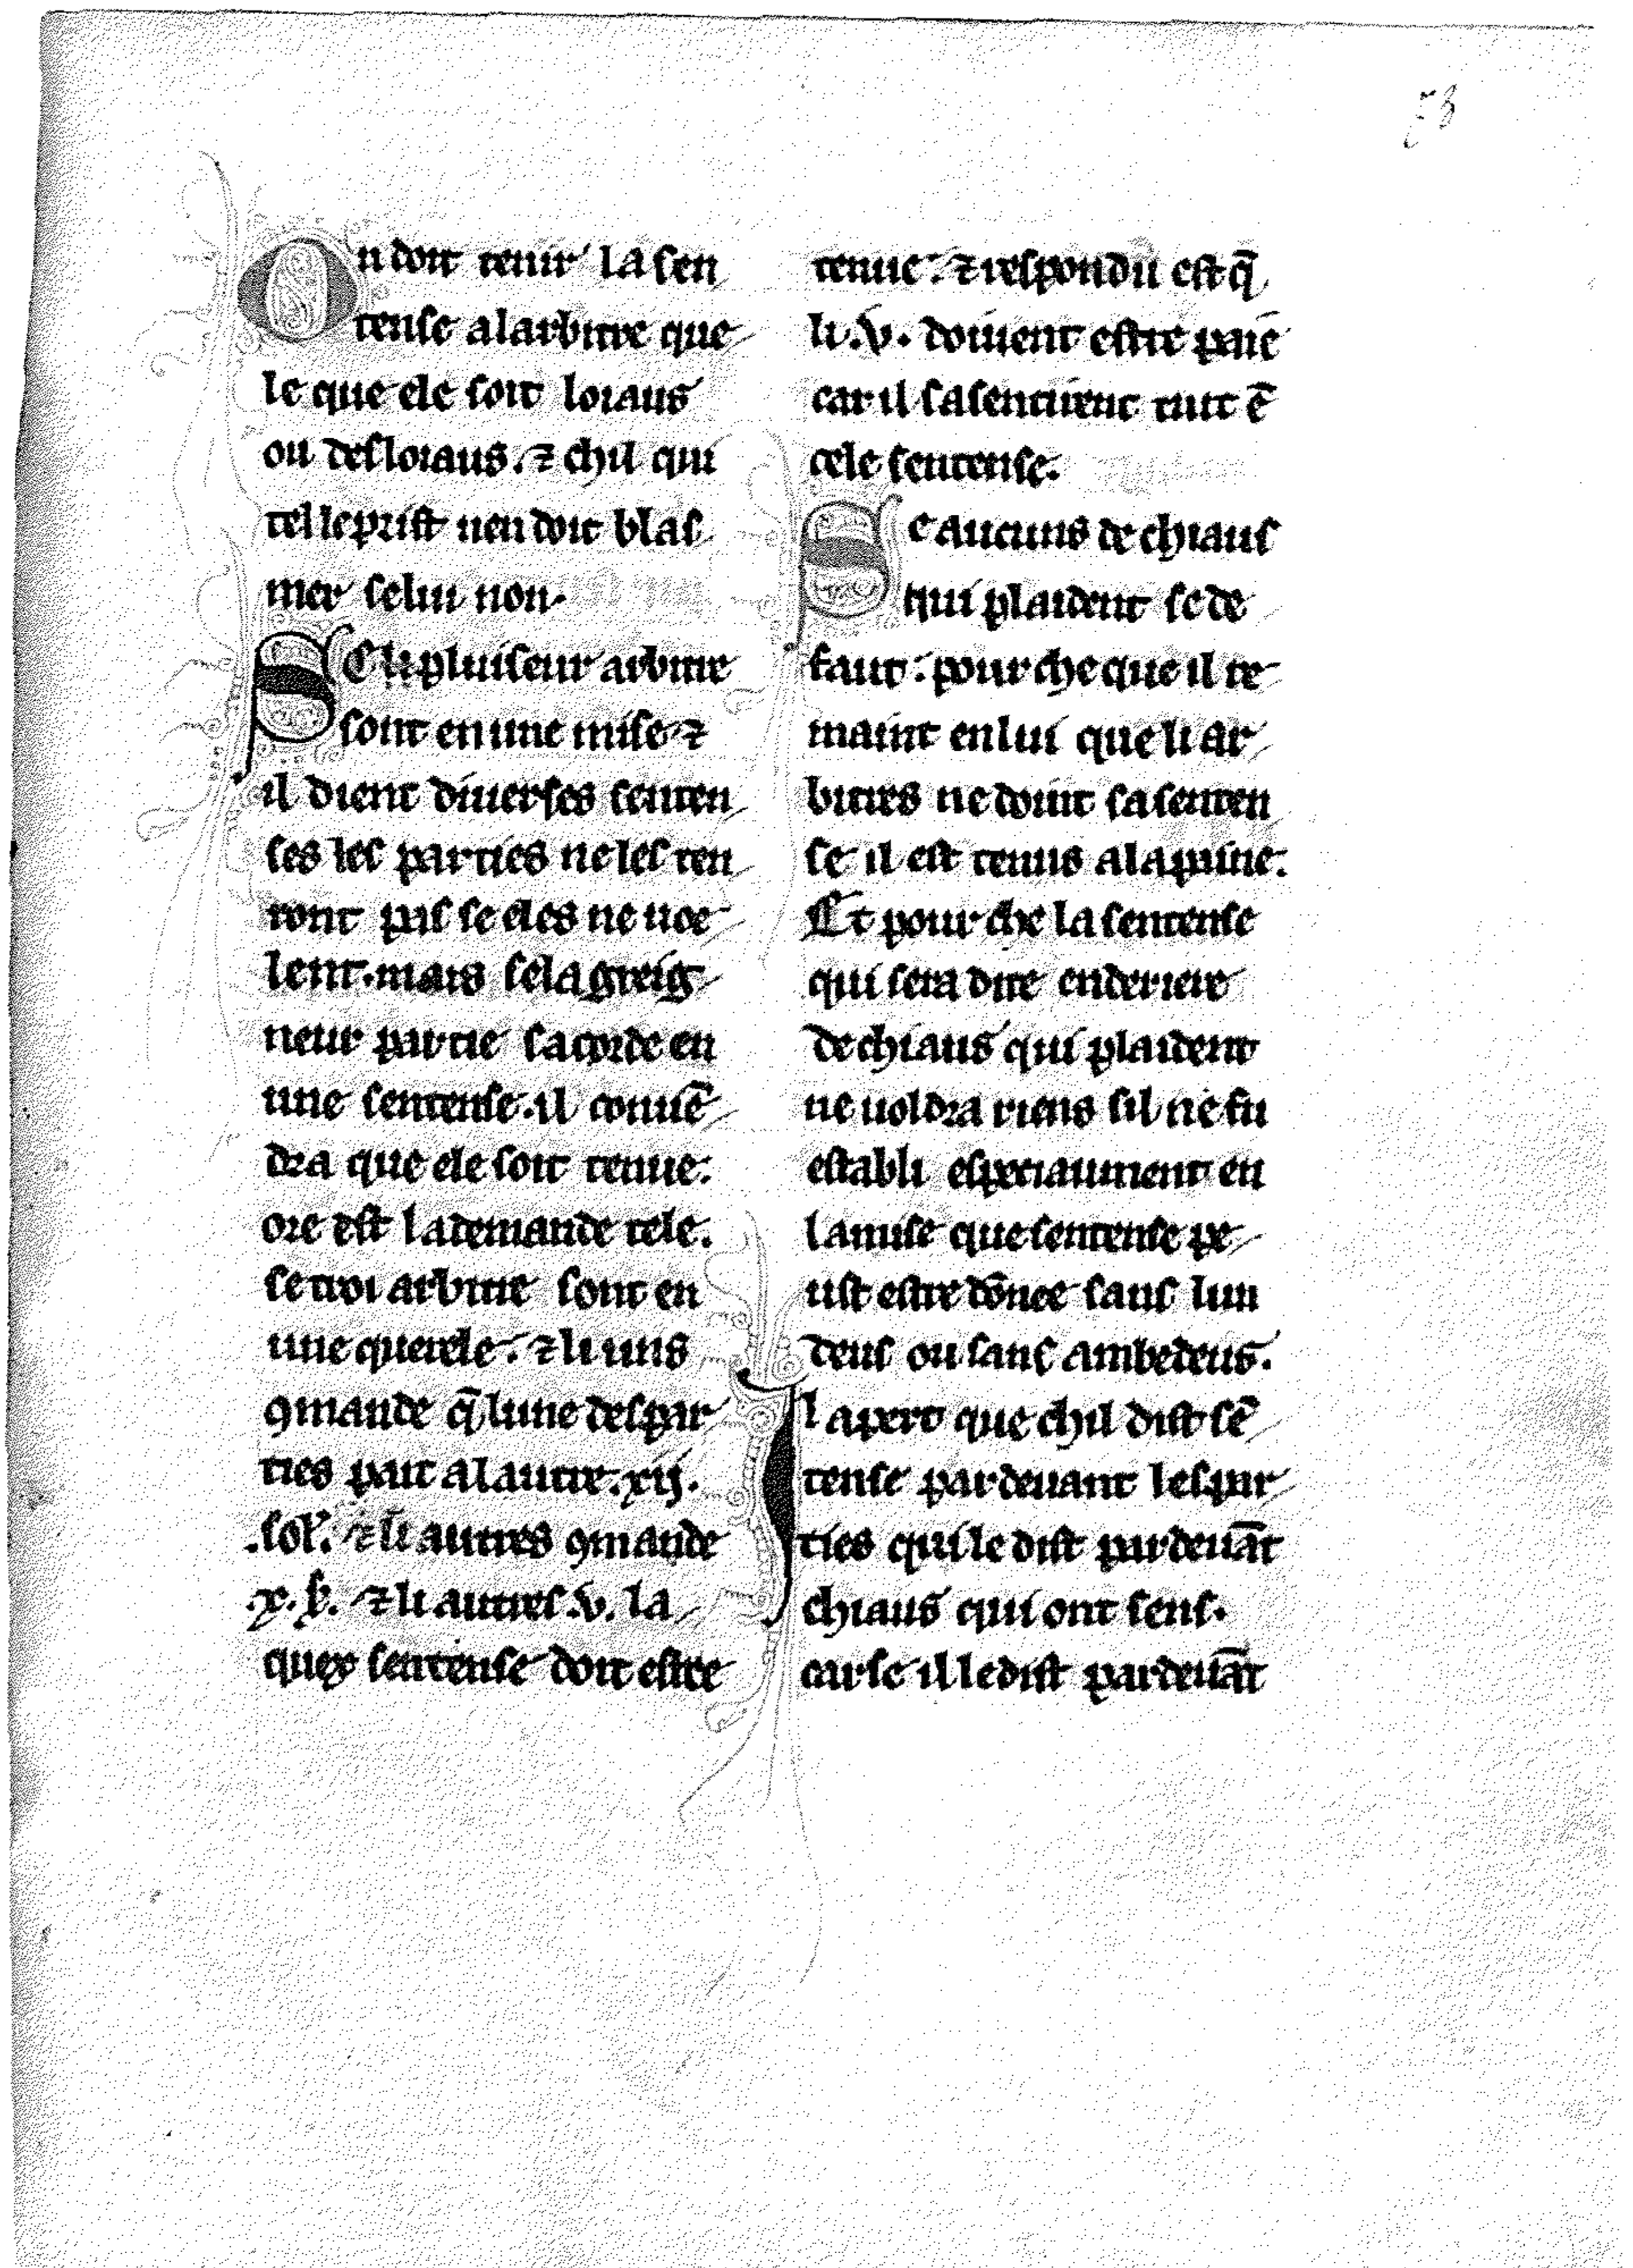 58
On doit tenir la sen
tense alarbitre que
le que ele soit loiaus
ou desloiaus. ⁊ chil qui
tel le prist nen doit blas
mer se lui non.
SE li pluiseur arbitre
sont en une mise ⁊
il dient diuerses senten
ses les parties ne les ten
ront pas se eles ne uoe
lent. mais se la greig
neur partie sacorde en
une sentense. il conuē
dra que ele soit tenue.
ore est la demande tele.
se troi arbitre sont en
une querele. ⁊ li uns
ꝯmande q̄ lune des par
ties pait a lautre. xij.
.sol'. ⁊ li autres ꝯmande
.x. s̄. ⁊ li autres .v. la
quex sentense doit estre
tenue. ⁊ respondu est q̄
li .v. doiuent estre paie
car il sasentirent tuit ē
cele sentense.
Se aucuns de chiaus
qui plaident se de
faut. pour che que il re
maint en lui que li ar
bitres ne doint sa senten
se il est tenus a la paine.
Et pour che la sentense
qui sera dite en deriere
de chiaus qui plaident
ne uoldra riens sil ne fu
establi especiaument en
la mise que sentense pe
ust estre dōnee sans lun
deus ou sans ambedeus.
Il apert que chil dist sē
tense par deuant les par
ties qui le dist par deuāt
chiaus qui ont sens.
car se il le dist par deuāt